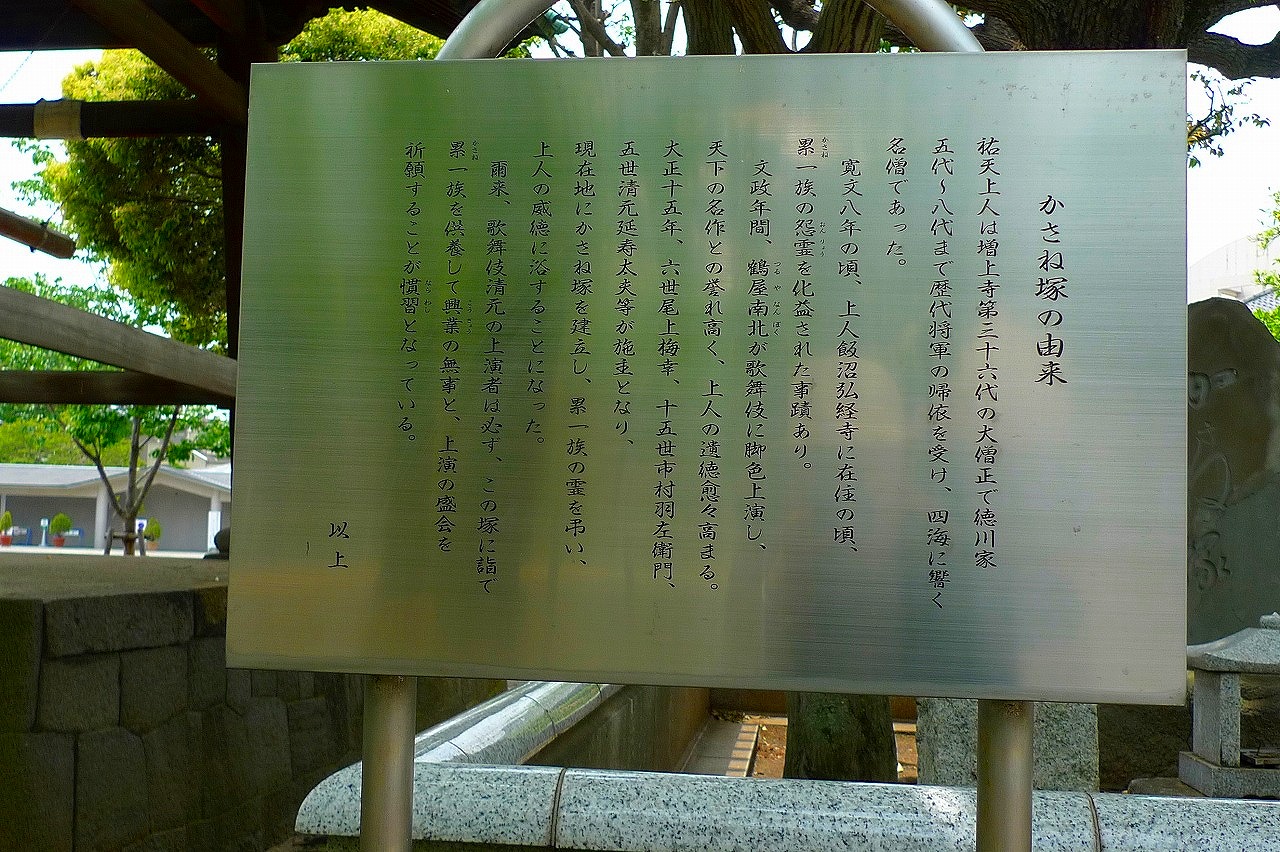 かさね塚の由来
祐天上人は増上寺第三十六代の大僧正で徳川家
五代～八代まで歴代将軍の帰依を受け、四海に響く
名僧であった。
寛文八年の頃、上人飯沼弘経寺に在住の頃、
累一族の怨霊を化益された事蹟あり。
文政年間、鶴屋南北が歌舞伎に脚色上演し、
天下の名作との誉れ高く、上人の遺徳愈々高まる。
大正十五年、六世尾上梅幸、十五世市村羽左衛門、
五世清元延寿太夫等が施主となり、
現在地にかさね塚を建立し、累一族の霊を弔い、
上人の威徳に浴することになった。
爾来、歌舞伎清元の上演者は必ず、この塚に詣で
累一族を供養して興業の無事と、上演の盛会を
祈願することが慣習となっている。
以上